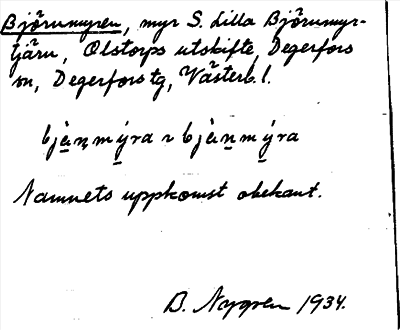 Björnmyren, myr S. Lilla Björnmyr-
tjärn, Olstorps utskifte, Degerfors
sn, Degerfors tg, Västerb. l.
bjä̀ṇmýra ~ bjä̀ṇmýra
Namnets uppkomst obekant.
B. Nygren 1934.